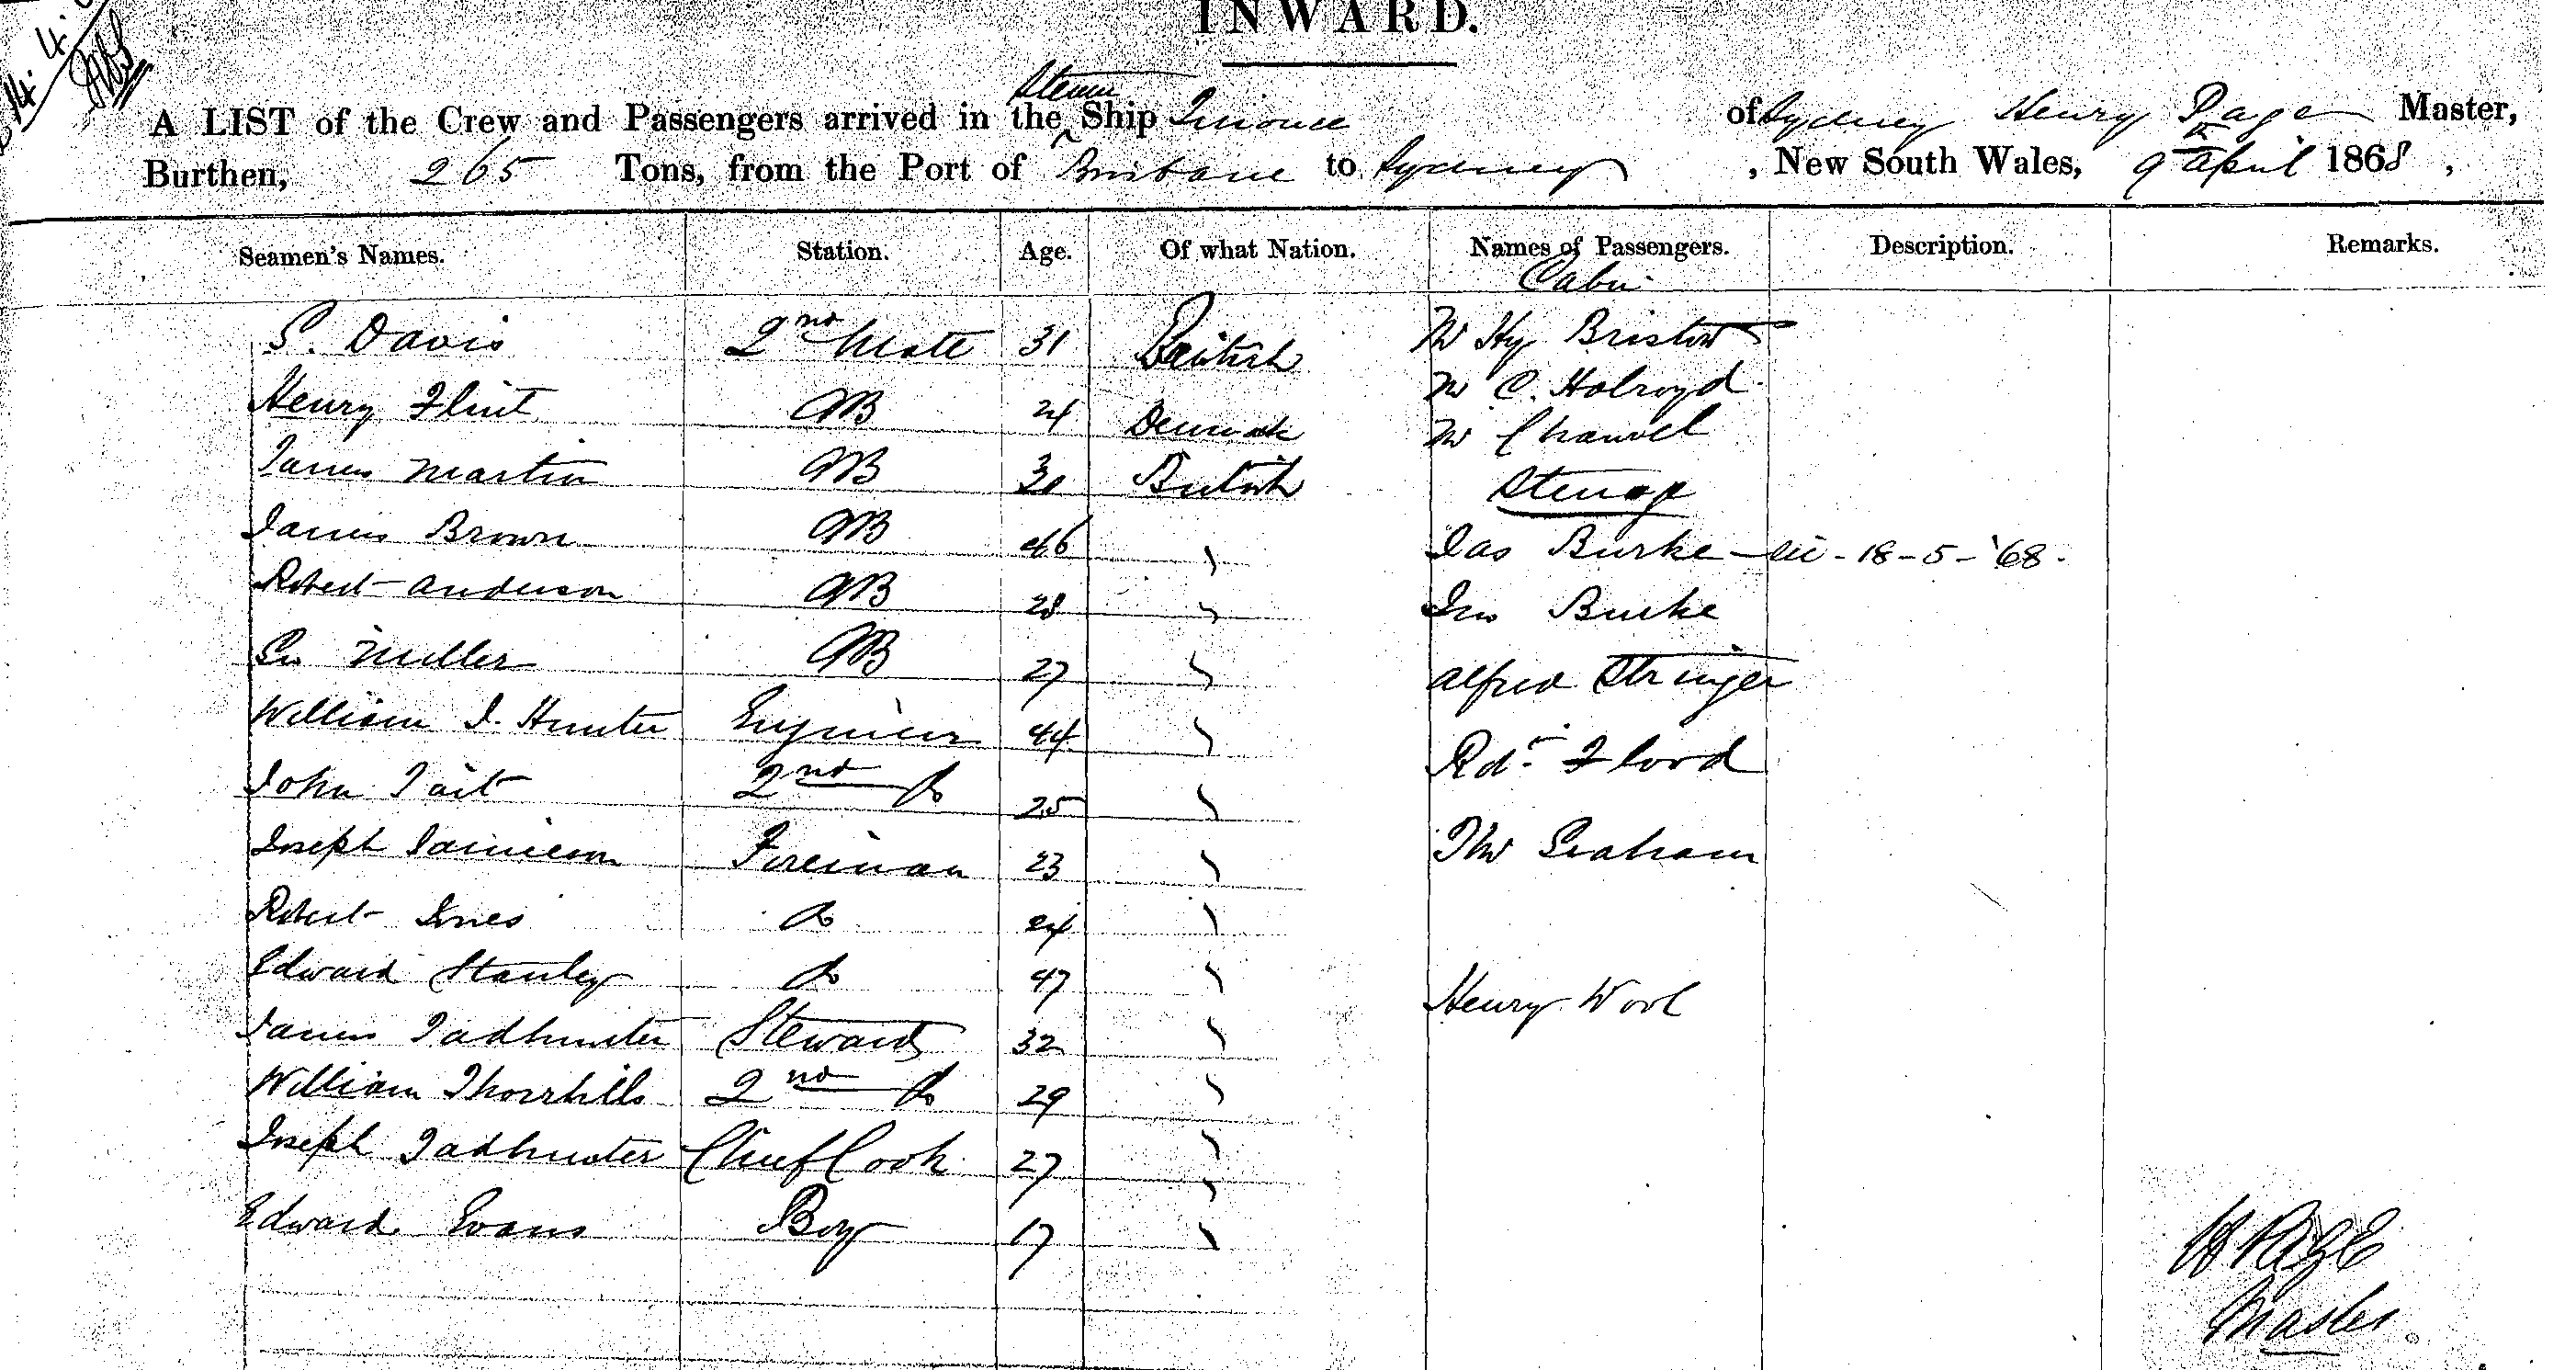 INWARD.
A LIST of the Crew and Passengers arrived in the Steam Ship of Sydney Henry Page Master,
Burthen, 265 Tons, from the Port of Brisbane to Sydney, New South Wales, 9th April 1868,
Seamen's Names. Station. Age. Of what Nation. Names of Passengers. Description. Remarks.
Cabin
S. Davis 2nd Mate 31 British Mr Hy Bristow
Mr C. Holroyd
Henry Flint AB 24 Denmark Mr Chauvel
James Martin AB 30 British Steerage
James Brown AB 46 Jas Burke - 18-5-'68.
Robert Anderson AB 28 Jno Burke
Miller AB 27 Alfred Stringer
William J. Hunter Engineer 44 Rd. Flood
John Tait 2nd Do 25
Joseph Jamieson Fireman 23 Thos Graham
Robert Innes Do 24
Edward Stanley Do 47 Henry Wool
James Tadhunter Steward 32
William Thornhill 2nd Do 29
Joseph Tadhunter Chief Cook 27
Edward Evans Boy 17
H Page
Master